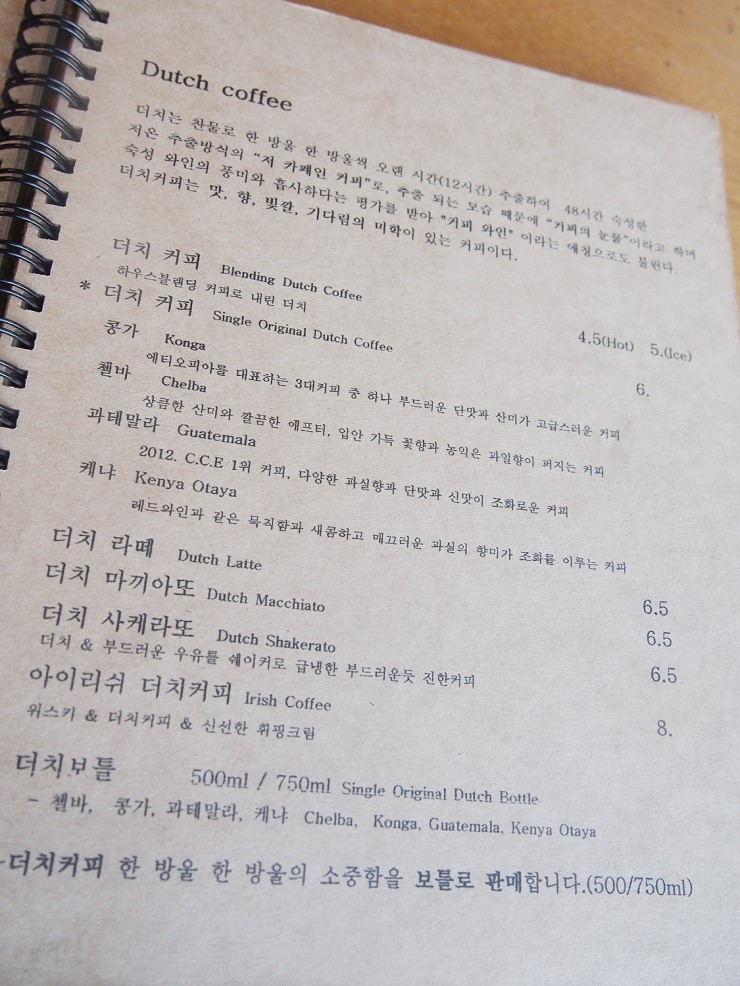 Dutch coffee
더치는 찬물로 한 방울 한 방울씩 오랜 시간(12시간) 추출하여 48시간 숙성한
저온 추출방식의 "저 카페인 커피"로, 추출 되는 모습 때문에 "커피의 눈물"이라고 하며
숙성 와인의 풍미와 흡사하다는 평가를 받아 "커피 와인" 이라는 애칭으로도 불린다.
더치커피는 맛, 향, 빛깔, 기다림의 미학이 있는 커피이다.
더치 커피 Blending Dutch Coffee 4.5(Hot) 5.(Ice)
하우스블랜딩 커피로 내린 더치
* 더치 커피 Single Original Dutch Coffee 6.
콩가 Konga
에티오피아를 대표하는 3대커피 중 하나 부드러운 단맛과 산미가 고급스러운 커피
첼바 Chelba
상큼한 산미와 깔끔한 애프터, 입안 가득 꽃향과 농익은 과일향이 퍼지는 커피
과테말라 Guatemala
2012. C.C.E 1위 커피, 다양한 과실향과 단맛과 신맛이 조화로운 커피
케냐 Kenya Otaya
레드와인과 같은 묵직함과 새콤하고 매끄러운 과실의 향미가 조화를 이루는 커피
더치 라떼 Dutch Latte 6.5
더치 마끼아또 Dutch Macchiato 6.5
더치 사케라또 Dutch Shakerato 6.5
더치 & 부드러운 우유를 쉐이커로 급냉한 부드러운듯 진한커피
아이리쉬 더치커피 Irish Coffee 8.
위스키 & 더치커피 & 신선한 휘핑크림
더치보틀 500ml / 750ml Single Original Dutch Bottle
- 첼바, 콩가, 과테말라, 케냐 Chelba, Konga, Guatemala, Kenya Otaya
-더치커피 한 방울 한 방울의 소중함을 보틀로 판매합니다.(500/750ml)